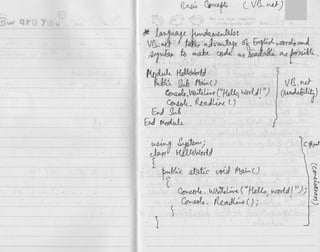 Basic Concepts (VB.net)
ow are you
* language fundamentals:
VB.net takes advantage of English words and
syntax to make code as readable as possible.
Module HelloWorld
Public Sub Main()
Console.WriteLine("Hello, World!")
Console.ReadLine()
End Sub
End Module
VB.net
(readability)
using System;
class HelloWorld
{
public static void Main()
{
Console.WriteLine("Hello, world!");
Console.ReadLine();
}
}
(conciseness)